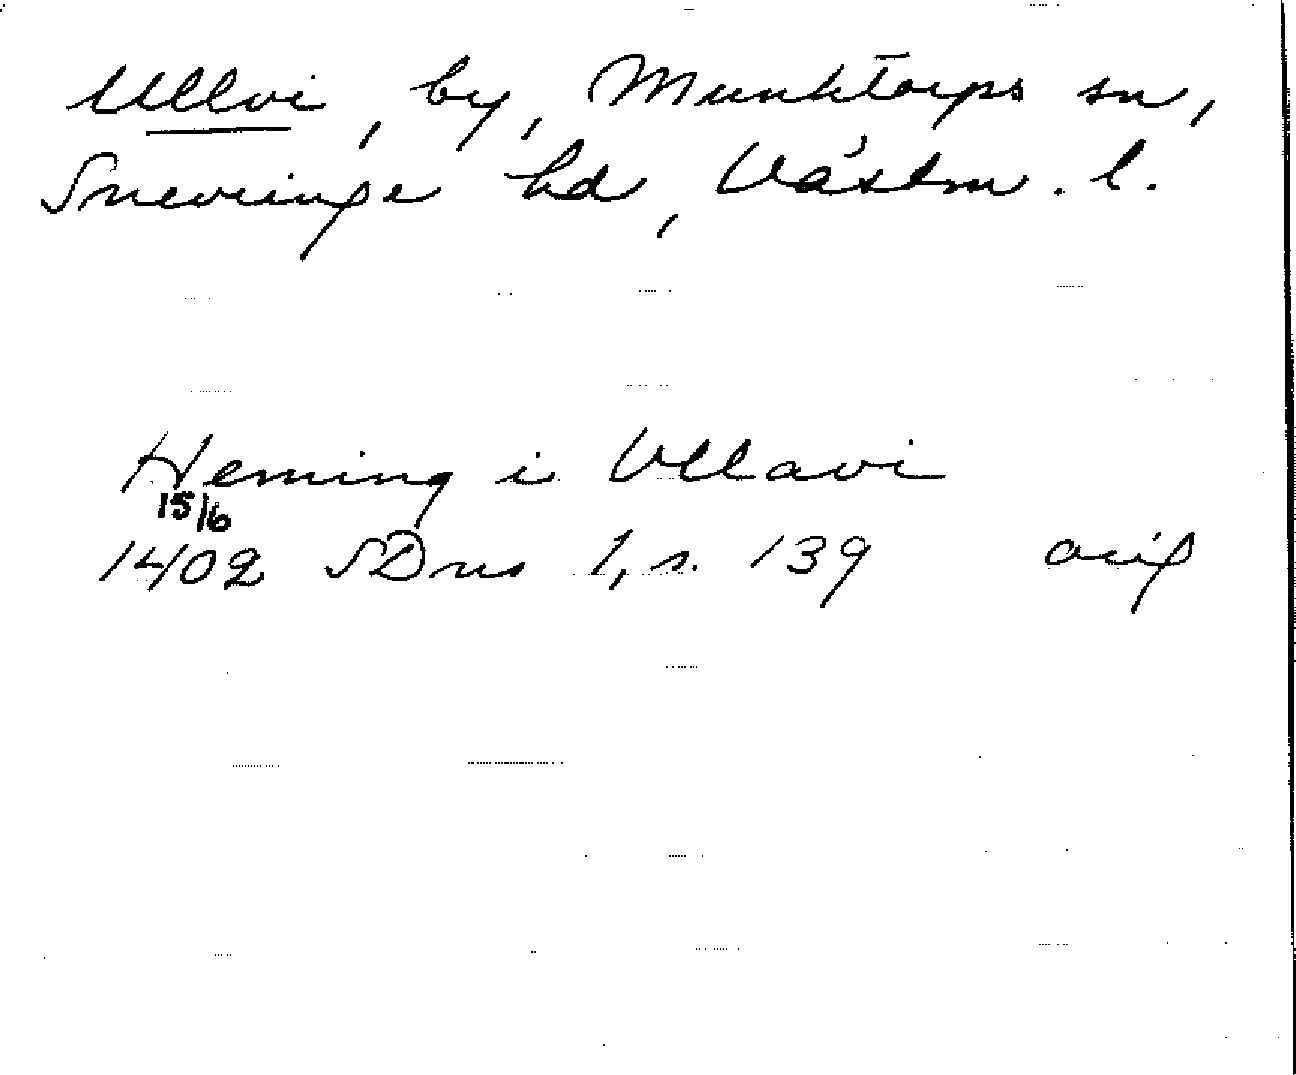 Ullvi, by, Munktorps sn,
Snevringe hd, Västm. l.
Heming i Vllavi
15/6
1402 SDns 1, s. 139 orig